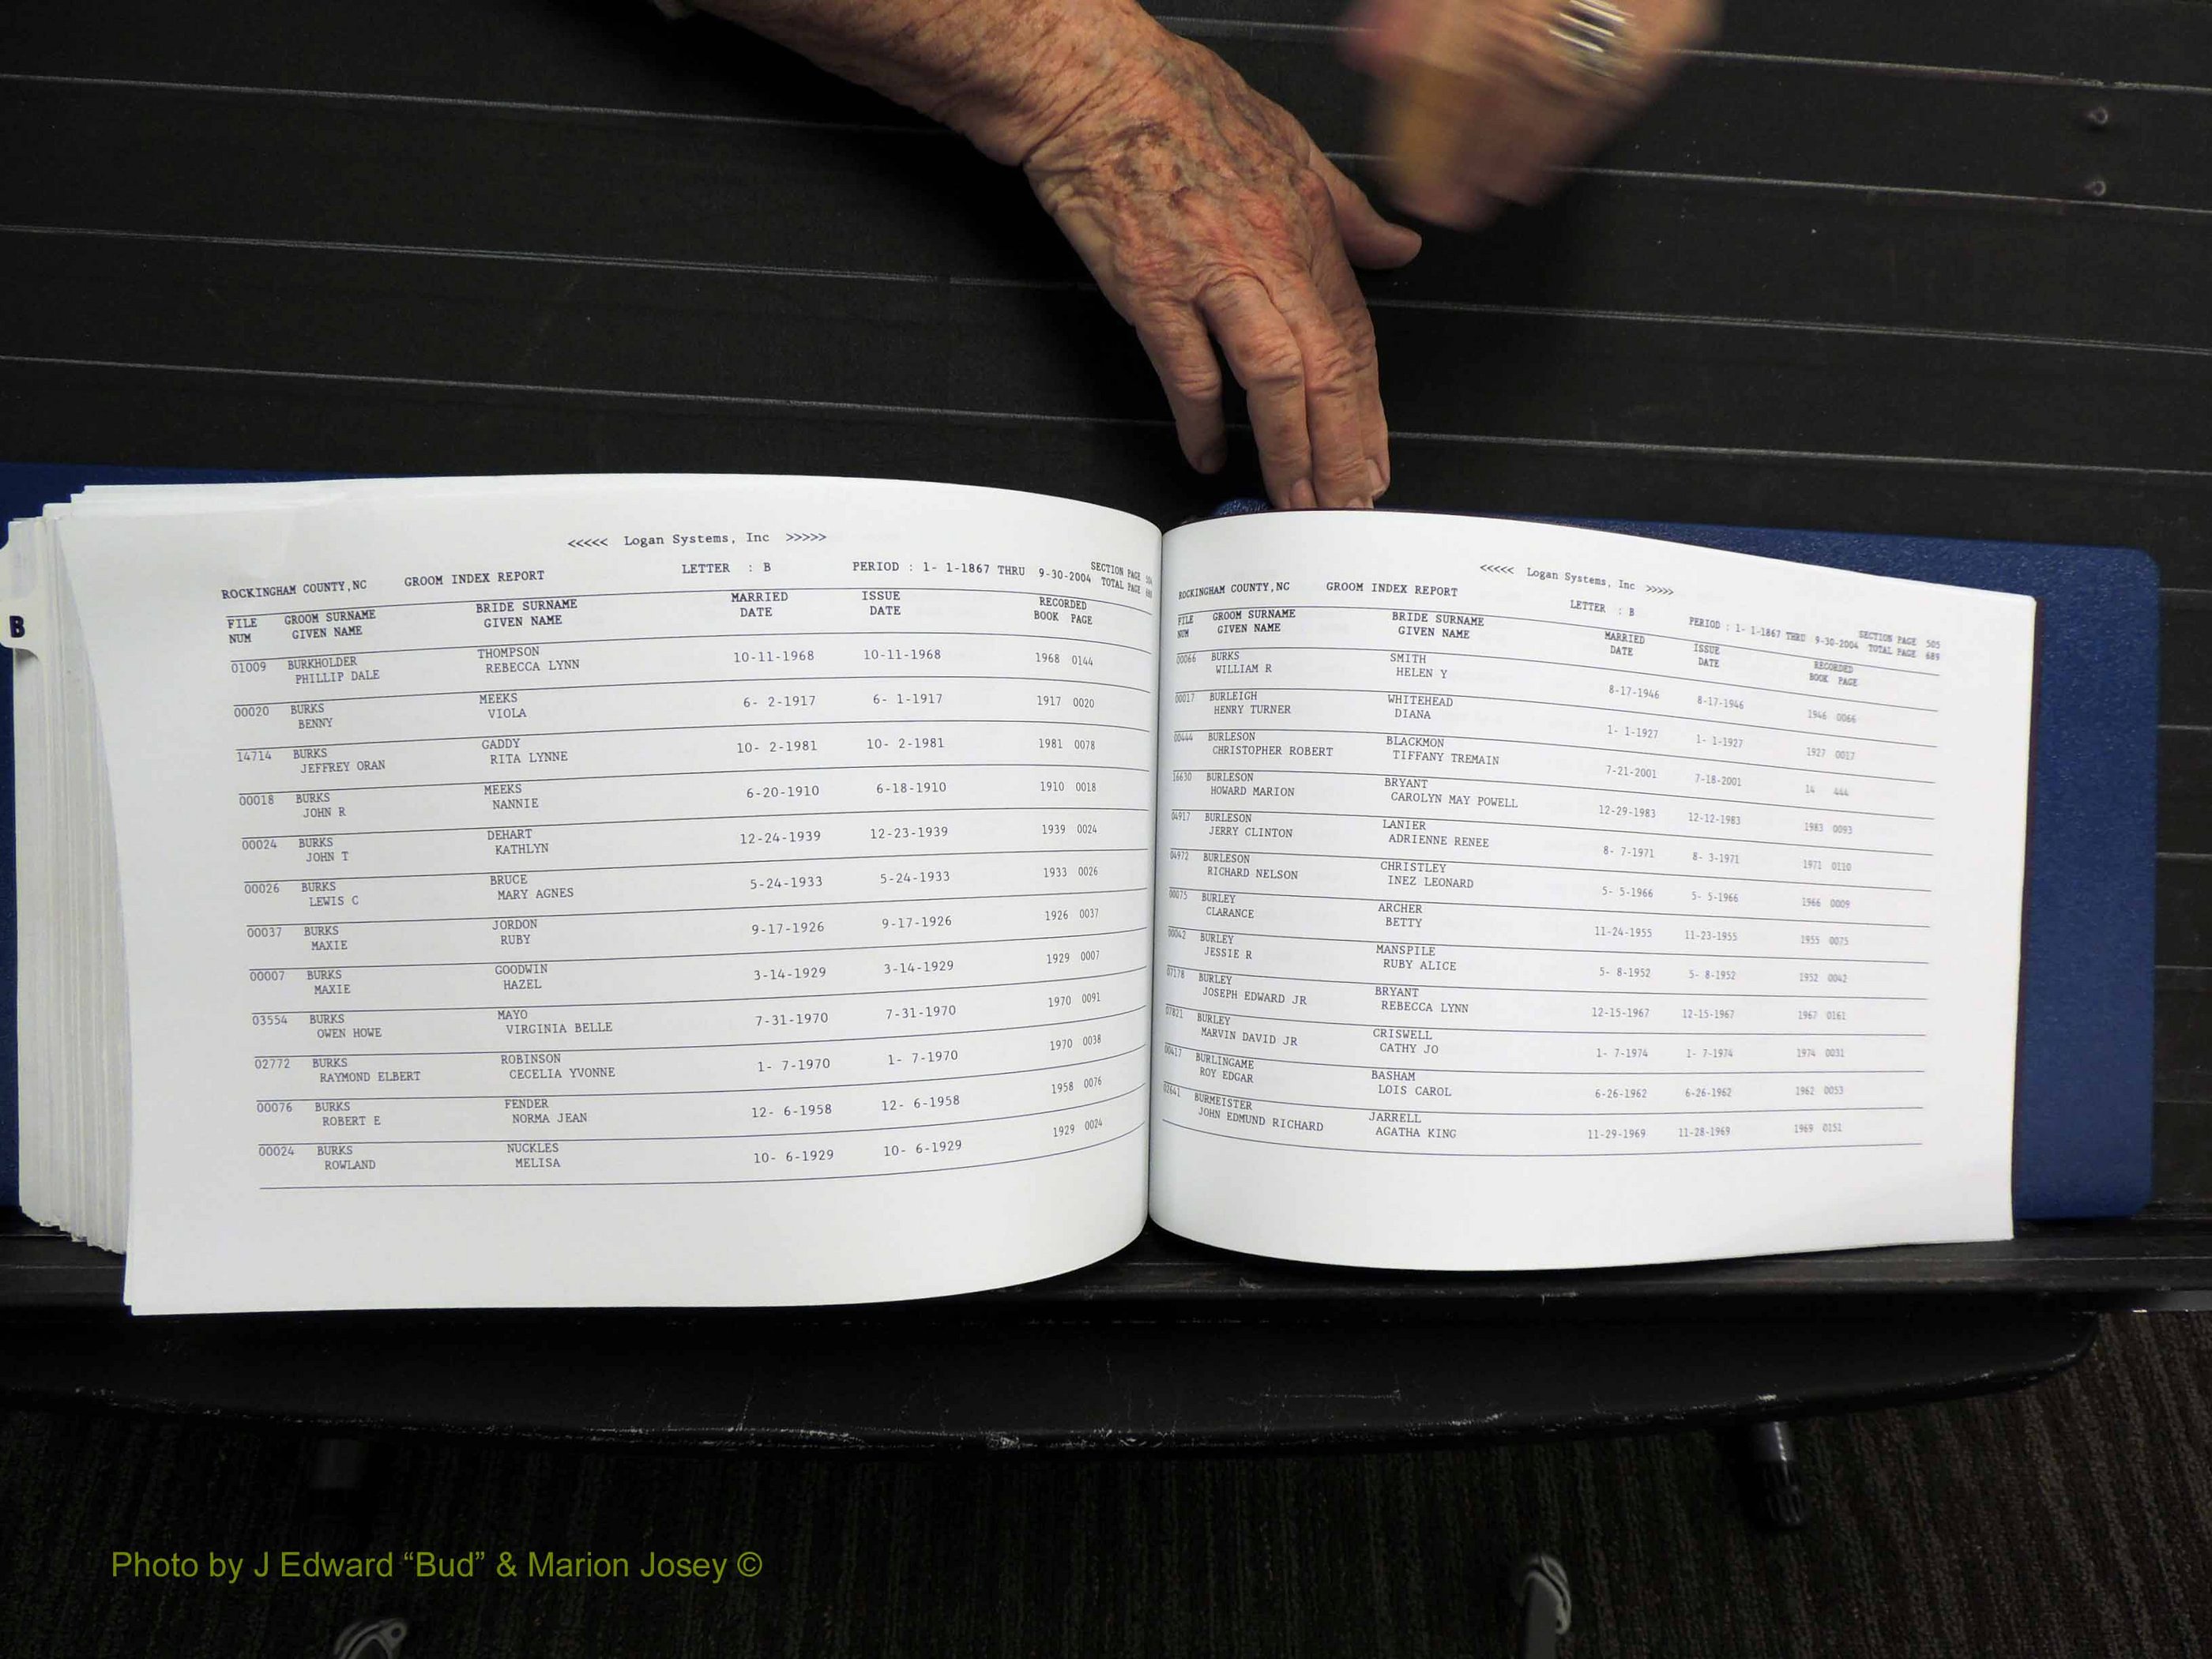 B
<<<<< Logan Systems, Inc >>>>>
ROCKINGHAM COUNTY,NC GROOM INDEX REPORT LETTER : B PERIOD : 1- 1-1867 THRU 9-30-2004 SECTION PAGE
TOTAL PAGE
FILE GROOM SURNAME BRIDE SURNAME MARRIED ISSUE RECORDED
NUM GIVEN NAME GIVEN NAME DATE DATE BOOK PAGE
01009 BURKHOLDER THOMPSON 10-11-1968 10-11-1968 1968 0144
PHILLIP DALE REBECCA LYNN
00020 BURKS MEEKS 6- 2-1917 6- 1-1917 1917 0020
BENNY VIOLA
14714 BURKS GADDY 10- 2-1981 10- 2-1981 1981 0078
JEFFREY ORAN RITA LYNNE
00018 BURKS MEEKS 6-20-1910 6-18-1910 1910 0018
JOHN R NANNIE
00024 BURKS DEHART 12-24-1939 12-23-1939 1939 0024
JOHN T KATHLYN
00026 BURKS BRUCE 5-24-1933 5-24-1933 1933 0026
LEWIS C MARY AGNES
00037 BURKS JORDON 9-17-1926 9-17-1926 1926 0037
MAXIE RUBY
00007 BURKS GOODWIN 3-14-1929 3-14-1929 1929 0007
MAXIE HAZEL
03554 BURKS MAYO 7-31-1970 7-31-1970 1970 0091
OWEN HOWE VIRGINIA BELLE
02772 BURKS ROBINSON 1- 7-1970 1- 7-1970 1970 0038
RAYMOND ELBERT CECELIA YVONNE
00076 BURKS FENDER 12- 6-1958 12- 6-1958 1958 0076
ROBERT E NORMA JEAN
00024 BURKS NUCKLES 10- 6-1929 10- 6-1929 1929 0024
ROWLAND MELISA
<<<<< Logan Systems, Inc >>>>>
ROCKINGHAM COUNTY,NC GROOM INDEX REPORT LETTER : B PERIOD : 1- 1-1867 THRU 9-30-2004 SECTION PAGE 505
TOTAL PAGE 689
FILE GROOM SURNAME BRIDE SURNAME MARRIED ISSUE RECORDED
NUM GIVEN NAME GIVEN NAME DATE DATE BOOK PAGE
00066 BURKS SMITH 8-17-1946 8-17-1946 1946 0066
WILLIAM R HELEN Y
00017 BURLEIGH WHITEHEAD 1- 1-1927 1- 1-1927 1927 0017
HENRY TURNER DIANA
00444 BURLESON BLACKMON 7-21-2001 7-18-2001 14 444
CHRISTOPHER ROBERT TIFFANY TREMAIN
16630 BURLESON BRYANT 12-29-1983 12-12-1983 1983 0093
HOWARD MARION CAROLYN MAY POWELL
04917 BURLESON LANIER 8- 7-1971 8- 3-1971 1971 0110
JERRY CLINTON ADRIENNE RENEE
04972 BURLESON CHRISTLEY 5- 5-1966 5- 5-1966 1966 0009
RICHARD NELSON INEZ LEONARD
00075 BURLEY ARCHER 11-24-1955 11-23-1955 1955 0075
CLARANCE BETTY
00042 BURLEY MANSPILE 5- 8-1952 5- 8-1952 1952 0042
JESSIE R RUBY ALICE
07178 BURLEY BRYANT 12-15-1967 12-15-1967 1967 0161
JOSEPH EDWARD JR REBECCA LYNN
07821 BURLEY CRISWELL 1- 7-1974 1- 7-1974 1974 0031
MARVIN DAVID JR CATHY JO
00417 BURLINGAME BASHAM 6-26-1962 6-26-1962 1962 0053
ROY EDGAR LOIS CAROL
02641 BURMEISTER JARRELL 11-29-1969 11-28-1969 1969 0151
JOHN EDMUND RICHARD AGATHA KING
Photo by J Edward “Bud” & Marion Josey ©